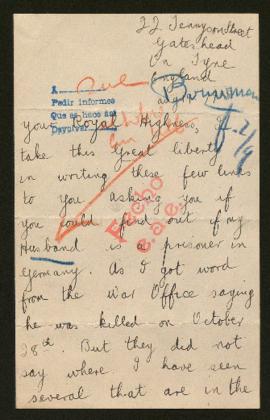 22 Tennyson Street
Gateshead
On Tyne
England
A
Pedir informes
Que se haga así
Devolver
your Royal Highness, I
take this Great liberty
in writing these few lines
to you asking you if
you could find out if my
Husband is a prisoner in
Germany. As I got word
from the War Office saying
he was killed on October
28th. But they did not
say where I have seen
several that are in the